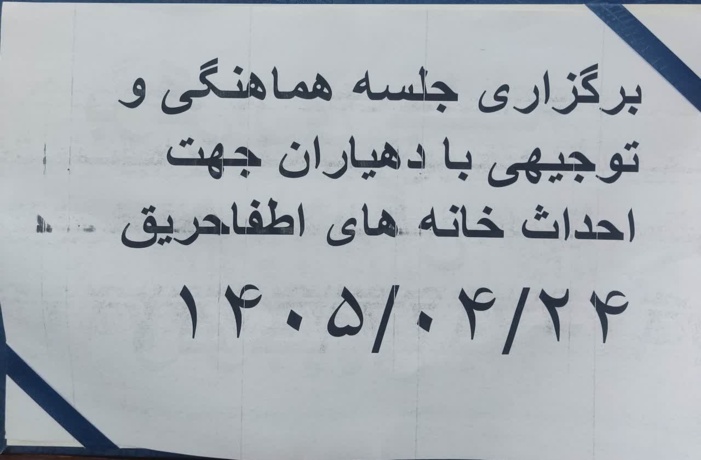 برگزاری جلسه هماهنگی و
توجیهی با دهیاران جهت
احداث خانه های اطفاحریق
۱۴۰۵/۰۴/۲۴